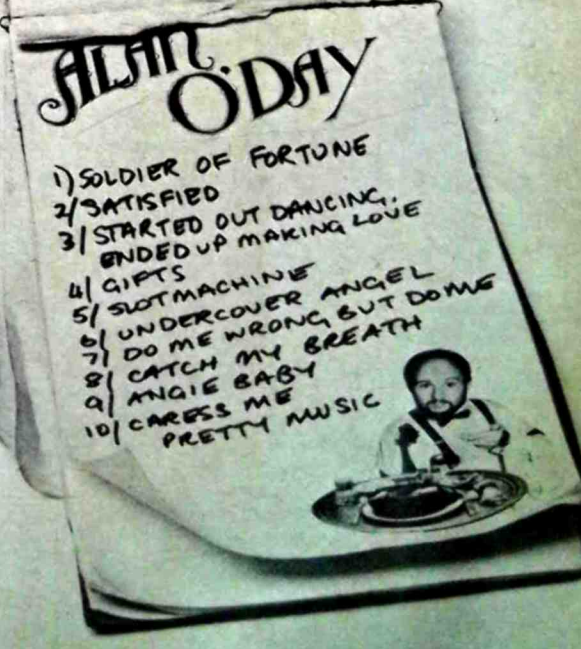 ALAN
O'DAY
1) SOLDIER OF FORTUNE
2/ SATISFIED
3/ STARTED OUT DANCING,
ENDED UP MAKING LOVE
4/ GIFTS
5/ SLOT MACHINE
6/ UNDERCOVER ANGEL
7/ DO ME WRONG, BUT DO ME
8/ CATCH MY BREATH
9/ ANGIE BABY
10/ CARESS ME
PRETTY MUSIC